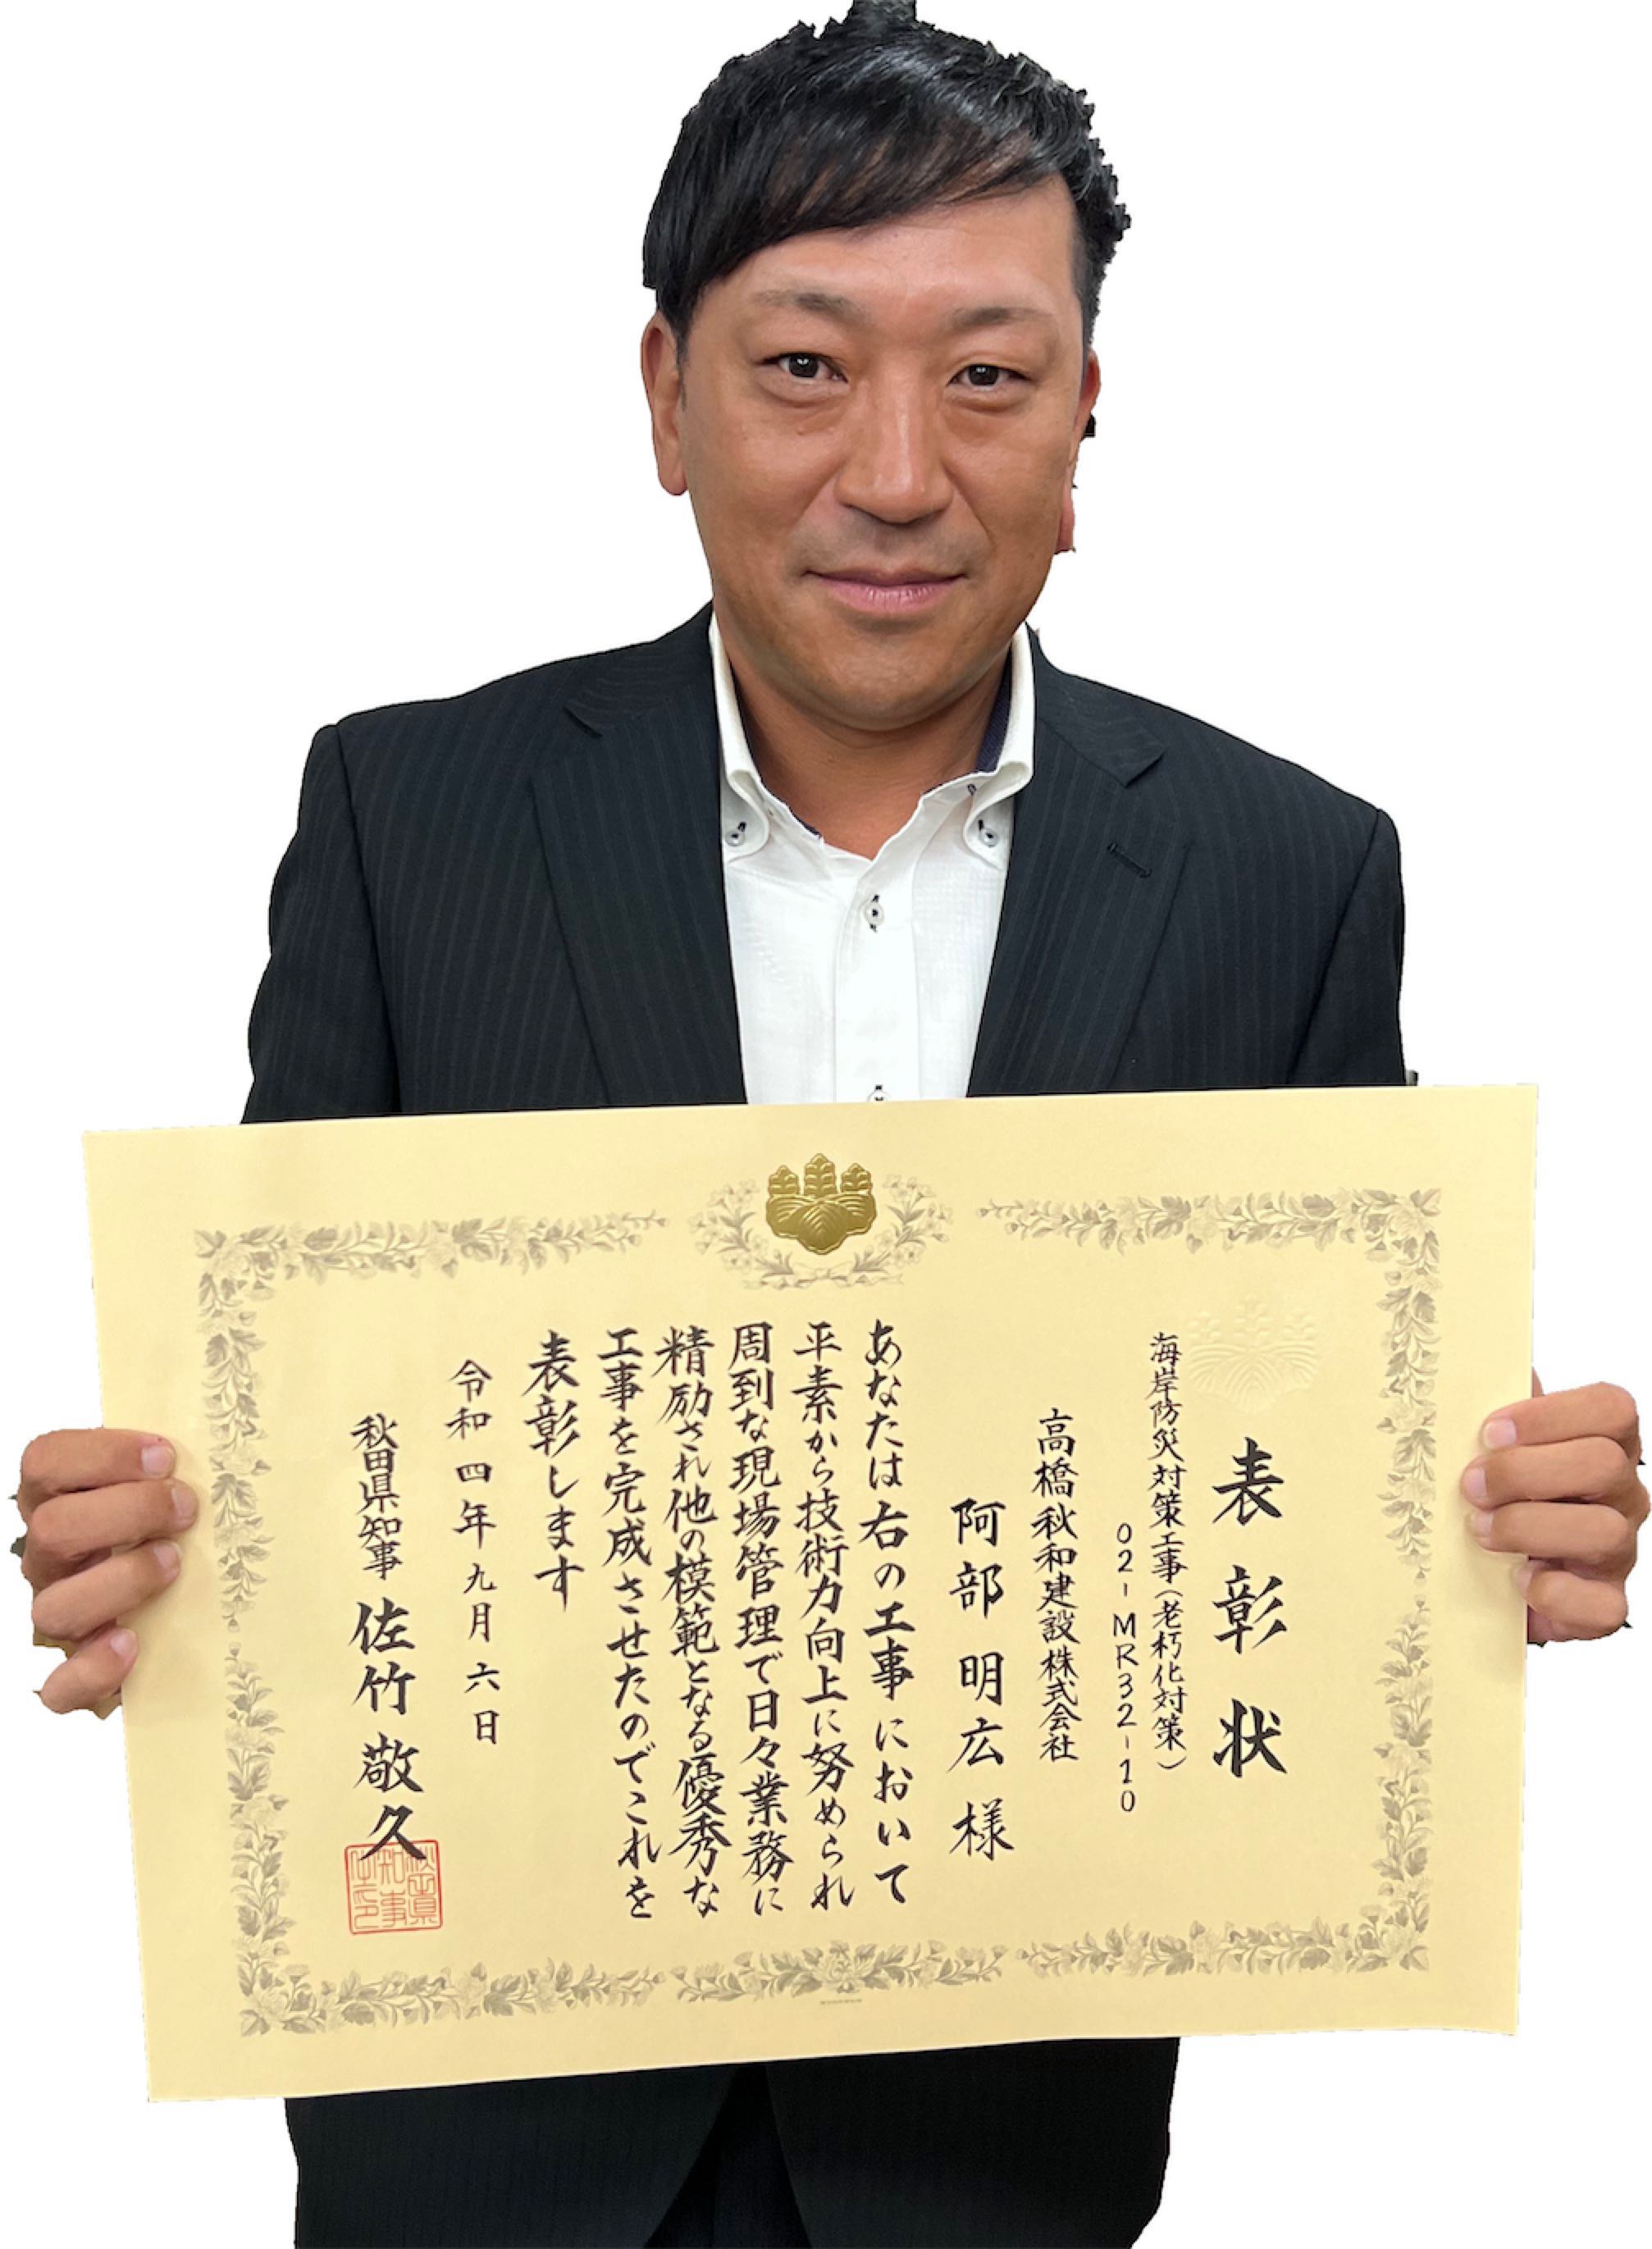 表彰状
海岸防災対策工事(老朽化対策)
02-MR32-10
高橋秋和建設株式会社
阿部明広様
あなたは右の工事において
平素から技術力向上に努められ
周到な現場管理で日々業務に
精励され他の模範となる優秀な
工事を完成させたのでこれを
表彰します
令和四年九月六日
秋田県知事 佐竹敬久